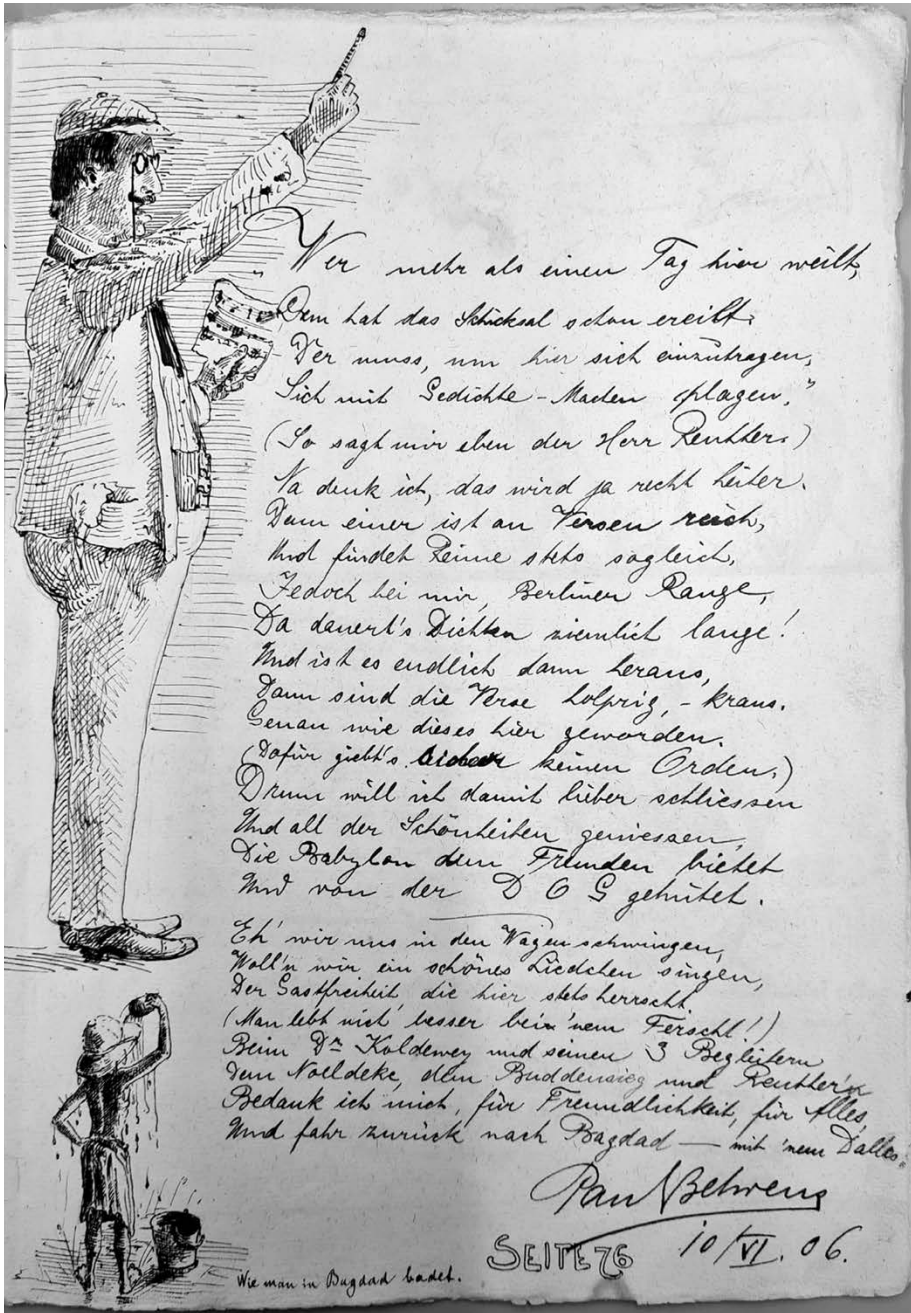 „Wer mehr als einen Tag hier weilt,
Dem hat das Schicksal schon ereilt.
Der muss, um hier sich einzutragen,
Sich mit Gedichte-Machen plagen."
(So sagt mir eben der Herr Reuther.)
Na denk ich, das wird ja recht heiter.
Denn einer ist an Versen reich,
Und findet Reime stets sogleich,
Jedoch bei mir, Berliner Range,
Da dauert's Dichten ziemlich lange!
Und ist es endlich dann heraus,
Dann sind die Verse holprig, - kraus.
Genau wie dieses hier geworden.
(Dafür giebt's keinen Orden.)
Drum will ich damit lieber schliessen
Und all der Schönheiten geniessen,
Die Babylon dem Fremden bietet
Und von der D O G gehütet.
Eh' wir uns in den Wagen schwingen,
Woll'n wir ein schönes Liedchen singen,
Der Gastfreiheit, die hier stets herrscht
(Man lebt nich' besser bei 'nem Ferscht!)
Beim Dr Koldewey und seinen 3 Begleitern
Dem Noeldeke, dem Buddensieg und Reuther'n
Bedank ich mich, für Freundlichkeit, für Alles,
Und fahr zurück nach Bagdad — mit 'nem Dalles.
Paul Behrens
10/VI. 06.
SEITE 76
Wie man in Bagdad badet.